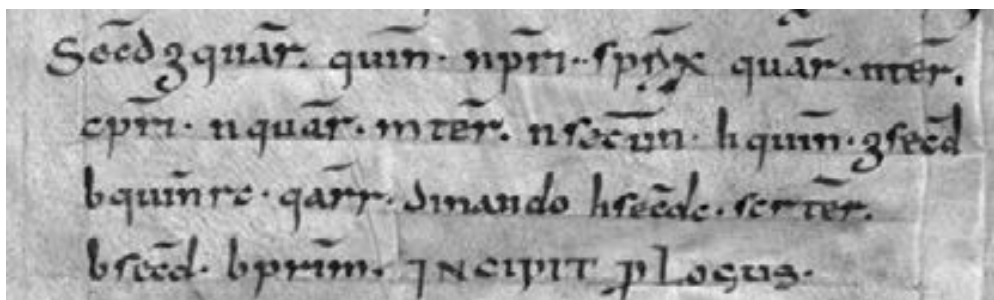 Secd̄ ʒ quār. quin̄. npr̄i. spr̄x quār. mter̄.
cpr̄i. nquār. mter̄. nsecūn. hquin̄. ʒsecd̄
bquin̄rc. qārr. dinando hsecd̄c. scrter̄.
bsecd̄. bprim̄. INCIPIT PLOGUS.